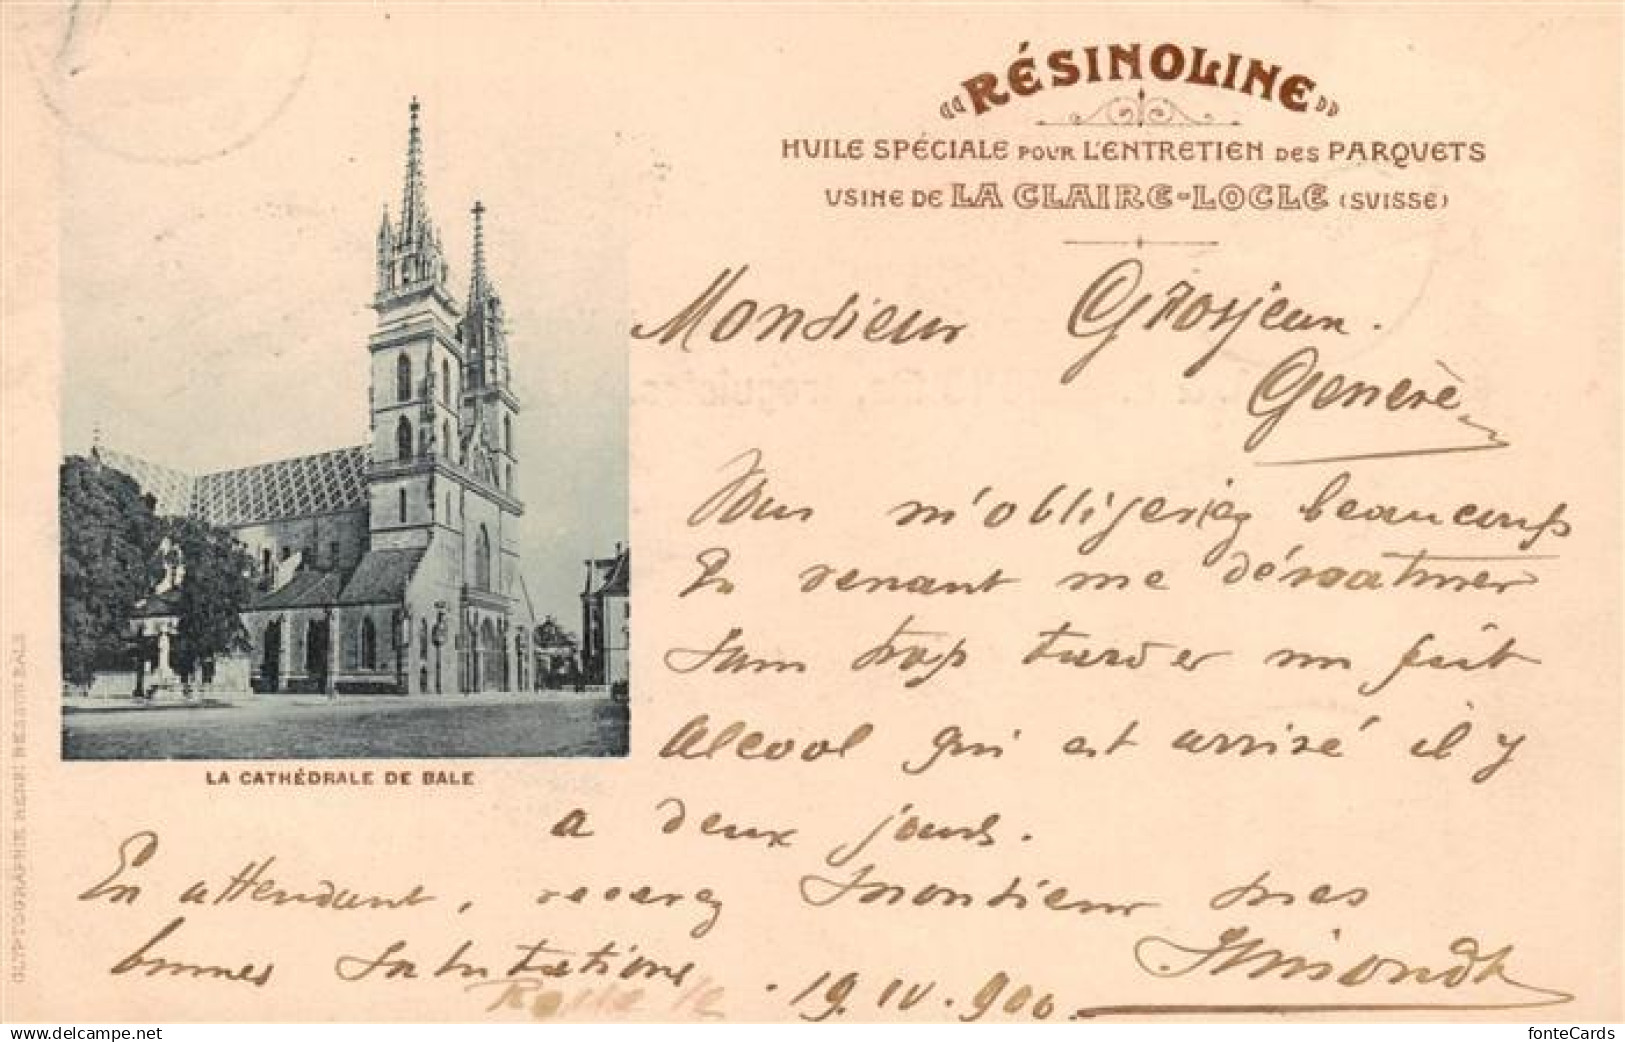 « RÉSINOLINE »
HUILE SPÉCIALE POUR L'ENTRETIEN DES PARQUETS
USINE DE LA CLAIRE-LOCLE (SUISSE)
Monsieur Grosjean.
Genève
Vous m'obligeriez beaucoup
En venant me dénaturer
sans trop tarder un fût
alcool qui est arrivé il y
a deux jours.
En attendant, recevez Monsieur mes
bonnes salutations
19.IV.900
LA CATHÉDRALE DE BALE
GLYPTOGRAPHIE HENRI BESSON BALE
delcampe.net
fonteCards